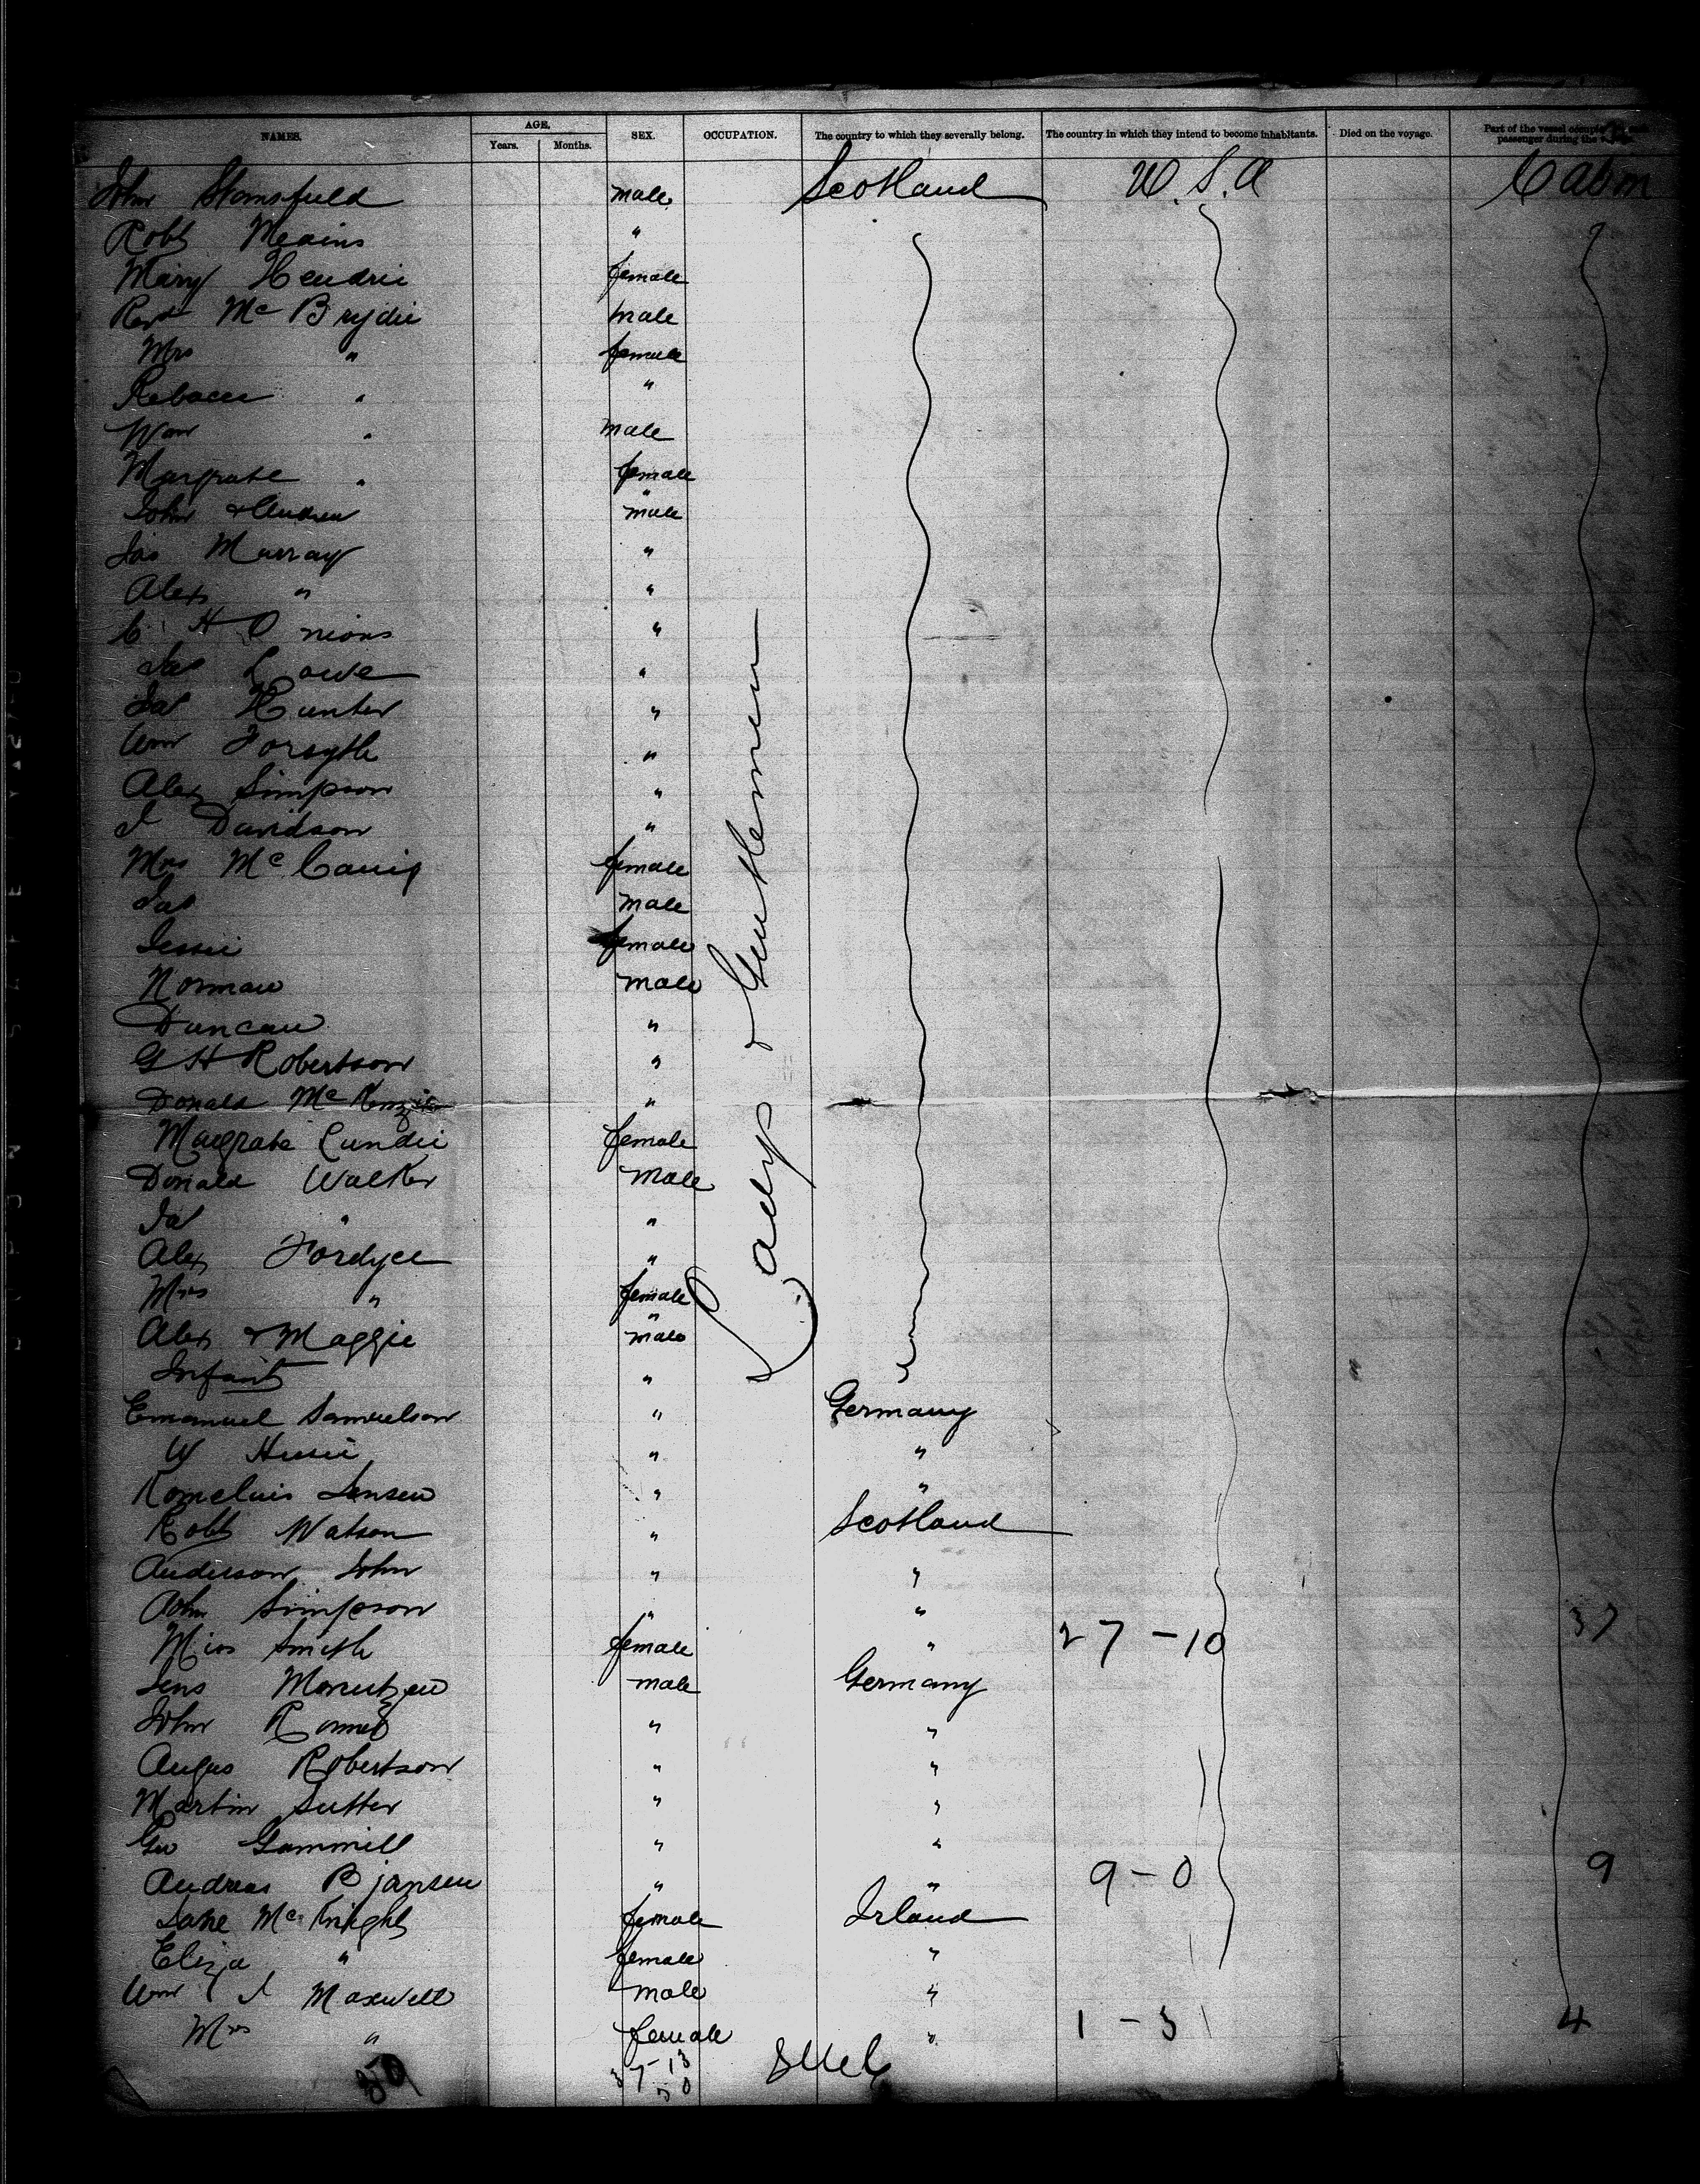 NAMES. AGE. SEX. OCCUPATION. The country to which they severally belong. The country in which they intend to become inhabitants. Died on the voyage. Part of the vessel occupied by each passenger during the voyage.
Years. Months.
John Stansfield male Scotland U.S.A Cabin
Robt Meains "
Mary Hendrie female
Revd Mc Brydie male
Mrs " female
Rebacca " "
Wm " male
Margrate " female
John & Andrew " male
Jas Murray "
Alex " "
C. H Onions "
Jas Lowe "
Jas Hunter "
Wm Forsyth "
Alex Simpson "
J Davidson "
Mrs Mc Caig female
Jas male
Jessie female
Norman male
Duncan "
G H Robertson "
Donald Mc Kenzie "
Margrate Lundie female
Donald Walker male
Jas " "
Alex Fordyce "
Mrs " female
Alex & Maggie " male
Infant "
Lady & Gentlemen
Emanuel Samuelson " Germany
W " "
Kornelius Jensen " "
Robt Watson " Scotland
Anderson John " "
John Simpson " "
Miss Smith female " 27 - 10 37
Jens male Germany
John " "
Angus Robertson " "
Martin Sutter " "
Geo Gammill " "
Andreas Bjansen " " 9 - 0 9
Jane Mc Knight female Irland
Eliza " female "
Wm J Maxwell male "
Mrs " female " 1 - 3 4
50 37-13
50